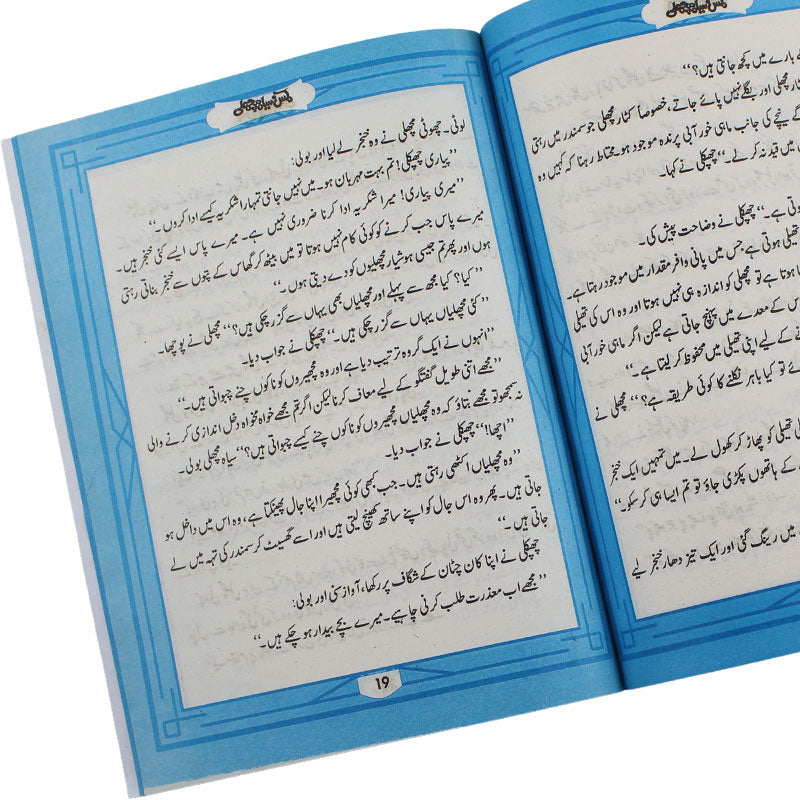 لوٹی۔ چھوٹی مچھلی نے وہ خنجر لے لیا اور بولی:
’’پیاری چھپکلی! تم بہت مہربان ہو۔ میں نہیں جانتی تمہارا شکریہ کیسے ادا کروں۔‘‘
’’میری پیاری! میرا شکریہ ادا کرنا ضروری نہیں ہے۔ میرے پاس ایسے کئی خنجر ہیں۔
میرے پاس جب کرنے کو کوئی کام نہیں ہوتا تو میں بیٹھ کر گھاس کے پتوں سے خنجر بناتی رہتی
ہوں اور پھر تم جیسی ہوشیار مچھلیوں کو دے دیتی ہوں۔‘‘
’’کیا؟ کیا مجھ سے پہلے اور مچھلیاں بھی یہاں سے گزر چکی ہیں؟‘‘ مچھلی نے پوچھا۔
’’کئی مچھلیاں یہاں سے گزر چکی ہیں۔‘‘ چھپکلی نے جواب دیا۔
’’انہوں نے ایک گروہ ترتیب دیا ہے اور وہ مچھیروں کو ناکوں چنے چبواتی ہیں۔‘‘
’’مجھے اتنی طویل گفتگو کے لیے معاف کرنا لیکن اگر تم مجھے خواہ مخواہ دخل اندازی کرنے والی
نہ سمجھو تو مجھے بتاؤ کہ وہ مچھلیاں مچھیروں کو ناکوں چنے کیسے چبواتی ہیں؟‘‘ سیاہ مچھلی بولی۔
’’اچھا!‘‘ چھپکلی نے جواب دیا۔
’’وہ مچھلیاں اکٹھی رہتی ہیں۔ جب کبھی کوئی مچھیرا اپنا جال پھینکتا ہے، وہ اس میں داخل ہو
جاتی ہیں۔ پھر وہ اس جال کو اپنے ساتھ کھینچ لیتی ہیں اور اسے گھسیٹ کر سمندر کی تہہ میں لے
جاتی ہیں۔‘‘
چھپکلی نے اپنا کان چٹان کے شگاف پر رکھا، آواز سنی اور بولی:
’’مجھے اب معذرت طلب کرنی چاہیے۔ میرے بچے بیدار ہو چکے ہیں۔‘‘
19
کے بارے میں کچھ جانتی ہیں؟‘‘
مچھلی اور بگلے نہیں پائے جاتے، خصوصاً کٹار مچھلی جو سمندر میں رہتی
نیچے کی جانب ماہی خور آبی پرندہ موجود ہو۔ محتاط رہنا کہ کہیں وہ
میں قید نہ کر لے۔‘‘ چھپکلی نے کہا۔
ہوتی ہے۔‘‘ چھپکلی نے وضاحت پیش کی۔
تھیلی ہوتی ہے، جس میں پانی وافر مقدار میں موجود رہتا ہے۔
ہوتا ہے تو مچھلی کو اندازہ ہی نہیں ہوتا اور وہ اس کی تھیلی
کے معدے میں پہنچ جاتی ہے لیکن اگر ماہی خور آبی
کے لیے اپنی تھیلی میں محفوظ کر لیتا ہے۔‘‘
تو کیا باہر نکلنے کا کوئی طریقہ ہے؟‘‘ مچھلی نے
تھیلی کو پھاڑ کر کھول لے۔ میں تمہیں ایک خنجر
کے ہاتھوں پکڑی جاؤ تو تم ایسا ہی کر سکو۔‘‘
میں رینگ گئی اور ایک تیز دھار خنجر لیے